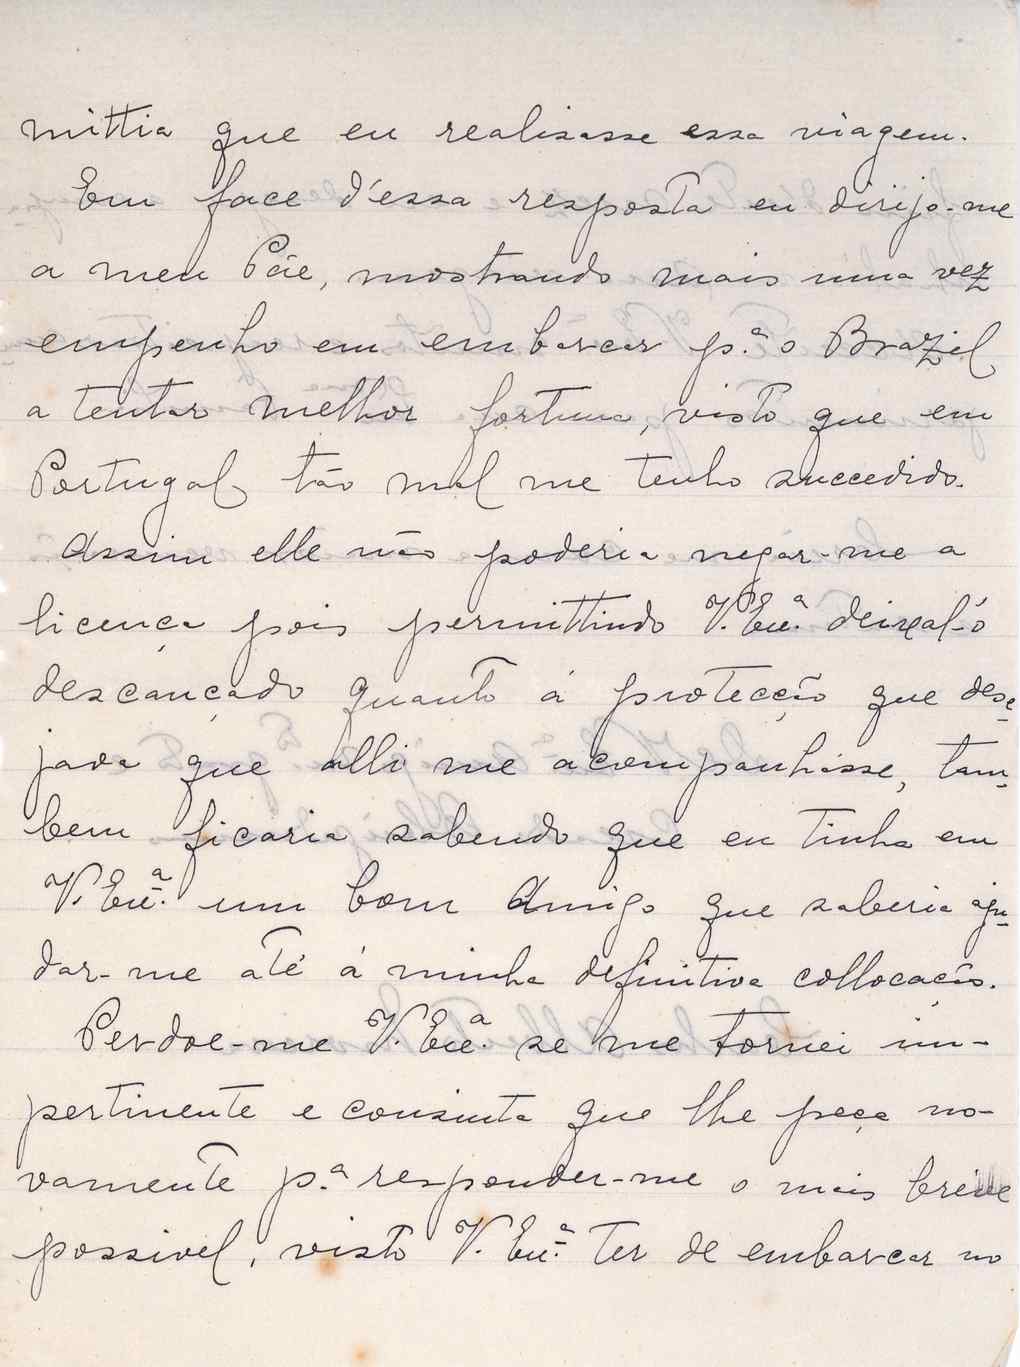 mittia que eu realisasse essa viagem.
Em face d'essa resposta eu dirijo-me
a meu Páe, mostrando mais uma vez
empenho em embarcar p.ª o Brazil
a tentar melhor fortuna, visto que em
Portugal tão mal me tenho succedido.
Assim elle não poderia negar-me a
licença pois permittindo V. Exc.ª deixal-o
descançado quanto á protecção que dese-
java que alli me acompanhasse, tam-
bem ficaria sabendo que eu tinha em
V. Exc.ª um bom Amigo que saberia aju-
dar-me até á minha definitiva collocação.
Perdoe-me V. Exc.ª se me tornei im-
pertinente e consinta que lhe peça no-
vamente p.ª responder-me o mais breve
possivel, visto V. Exc.ª ter de embarcar no